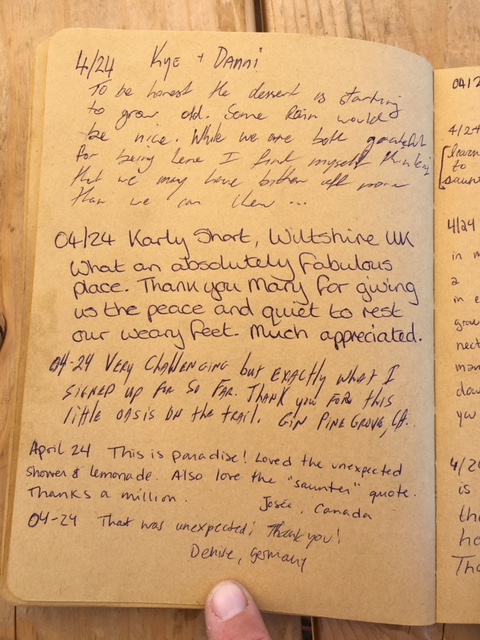 4/24 Kye + Danni
To be honest the dessert is starting
to grow old. Some Rain would
be nice. While we are both grateful
for being here I find myself thinking
that we may have bitten off more
than we can chew ...
04/24 Karly Short, Wiltshire UK
What an absolutely fabulous
place. Thank you Mary for giving
us the peace and quiet to rest
our weary feet. Much appreciated.
04-24 VERY CHALLENGING but EXACTLY WHAT I
SIGNED UP FOR SO FAR. THANK YOU FOR THIS
little OASIS ON the TRAIL. GIN PINE GROVE, CA.
April 24 This is paradise! Loved the unexpected
shower & lemonade. Also love the "saunter" quote.
Thanks a million.
Josée, Canada
04-24 That was unexpected! Thank you!
Germany
04/2
4/24
[learn
to
saun
4/24
in m
a
in e
grou
nect
man
dow
you
4/2
is
th
ho
Tha